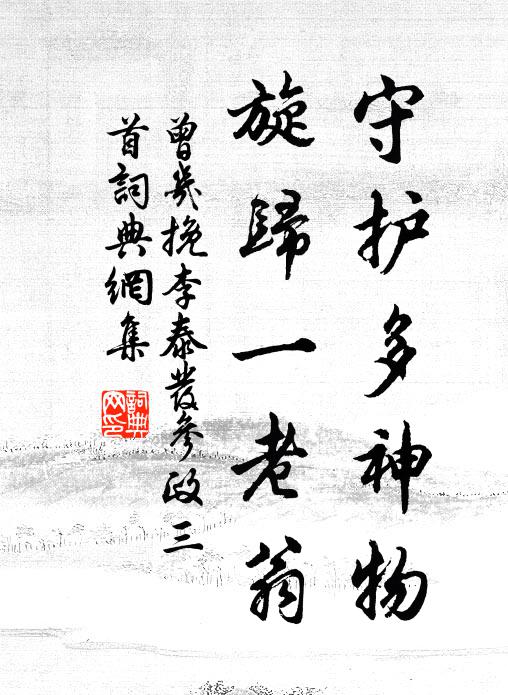 守护多神物
旋歸一老翁
曾幾挽李泰發參政三
首詞典網集
詞典
网印